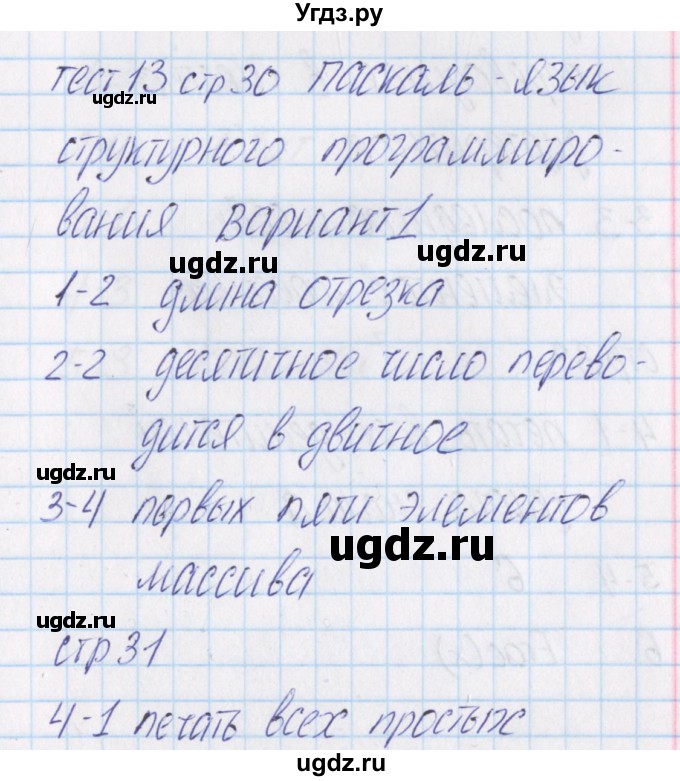 Угдз.ру
тест 13 стр 30 Паскаль - язык
ugdz.ru
структурного программиро-
вания Вариант 1
ugdz.ru ugdz.ru
1-2 длина отрезка
2-2 десятичное число перево-
дится в двичное
ugdz.ru
3-4 первых пяти элементов
ugdz.ru
массива
ugdz.ru
стр 31
4-1 печать всех простых
ugdz.ru ugdz.ru